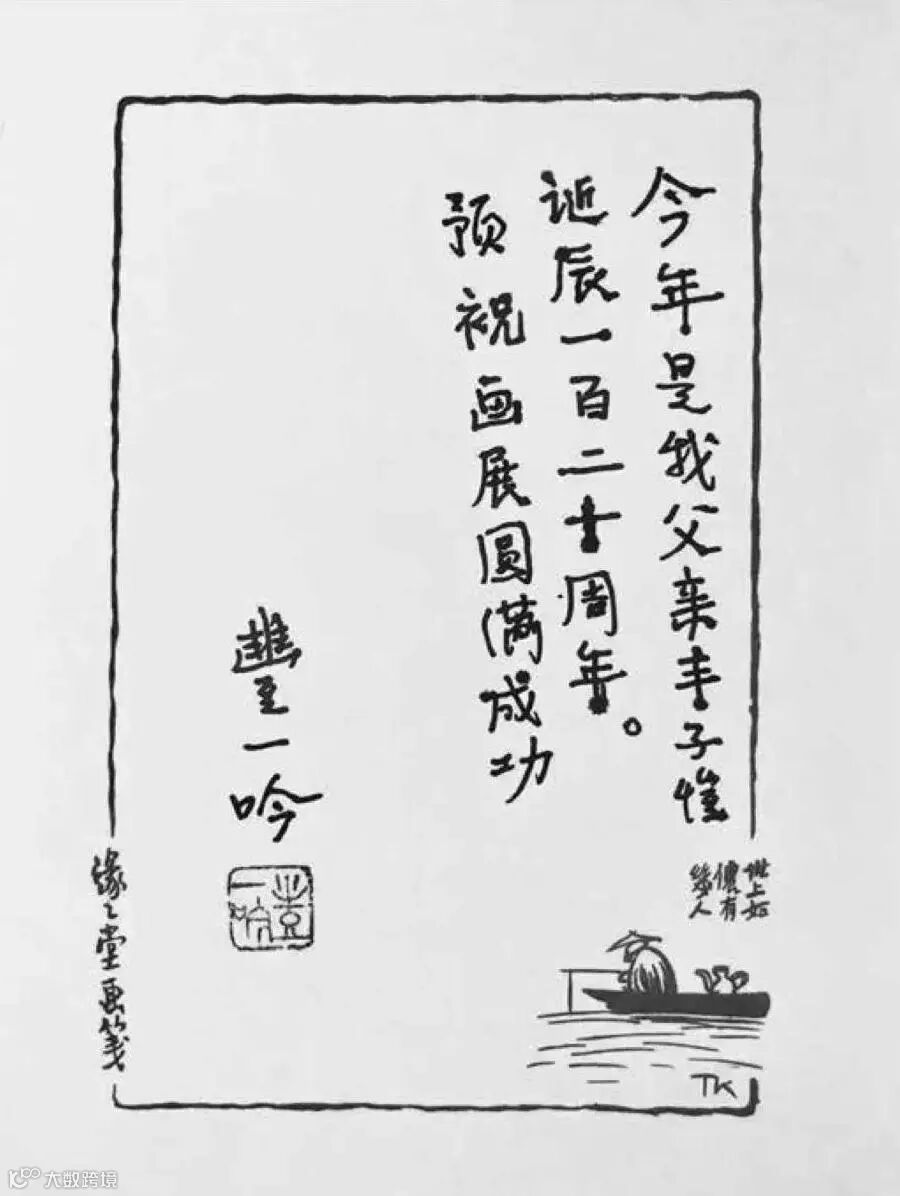 今年是我父亲丰子恺
诞辰一百二十周年。
预祝画展圆满成功
豐一吟
世上如
儂有
幾人
TK
缘缘堂画笺
大数跨境